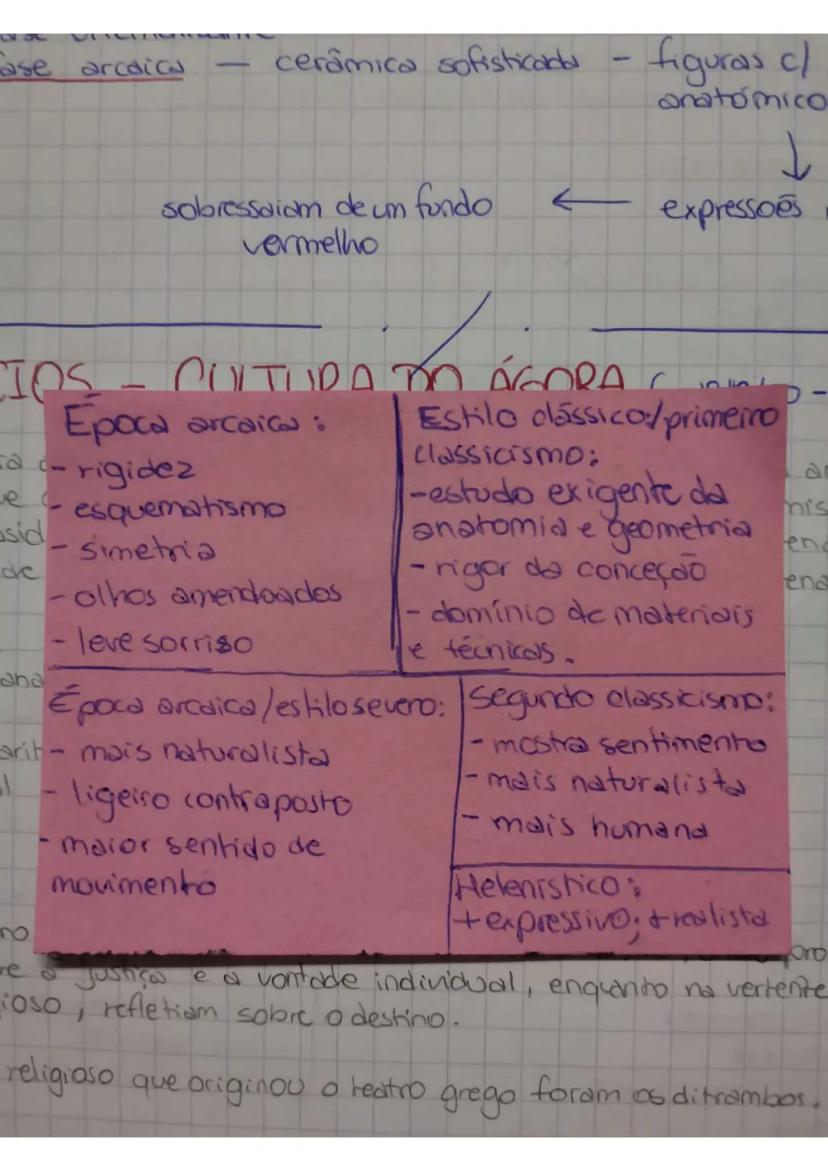 ase arcaica — cerâmica sofisticada - figuras c/
anatómico
sobressaiam de um fundo ← expressoēs
vermelho
CULTURA DO ÁGORA
Época arcaica:
- rigidez
- esquematismo
- simetria
- olhos amendoados
- leve sorriso
Estilo clássico:/primeiro
classicismo:
-estudo exigente da
anatomia e geometria
- rigor da conceção
- domínio de materiais
e técnicas.
Época arcaica/estilo severo:
- mais naturalista
- ligeiro contraposto
- maior sentido de
movimento
Segundo classicismo:
- mostra sentimento
- mais naturalista
- mais humana
Helenístico:
+ expressivo; + realista
a justiça e a vontade individual, enquanto na vertente
ioso, refletiam sobre o destino.
religioso que originou o teatro grego foram os ditirambos.